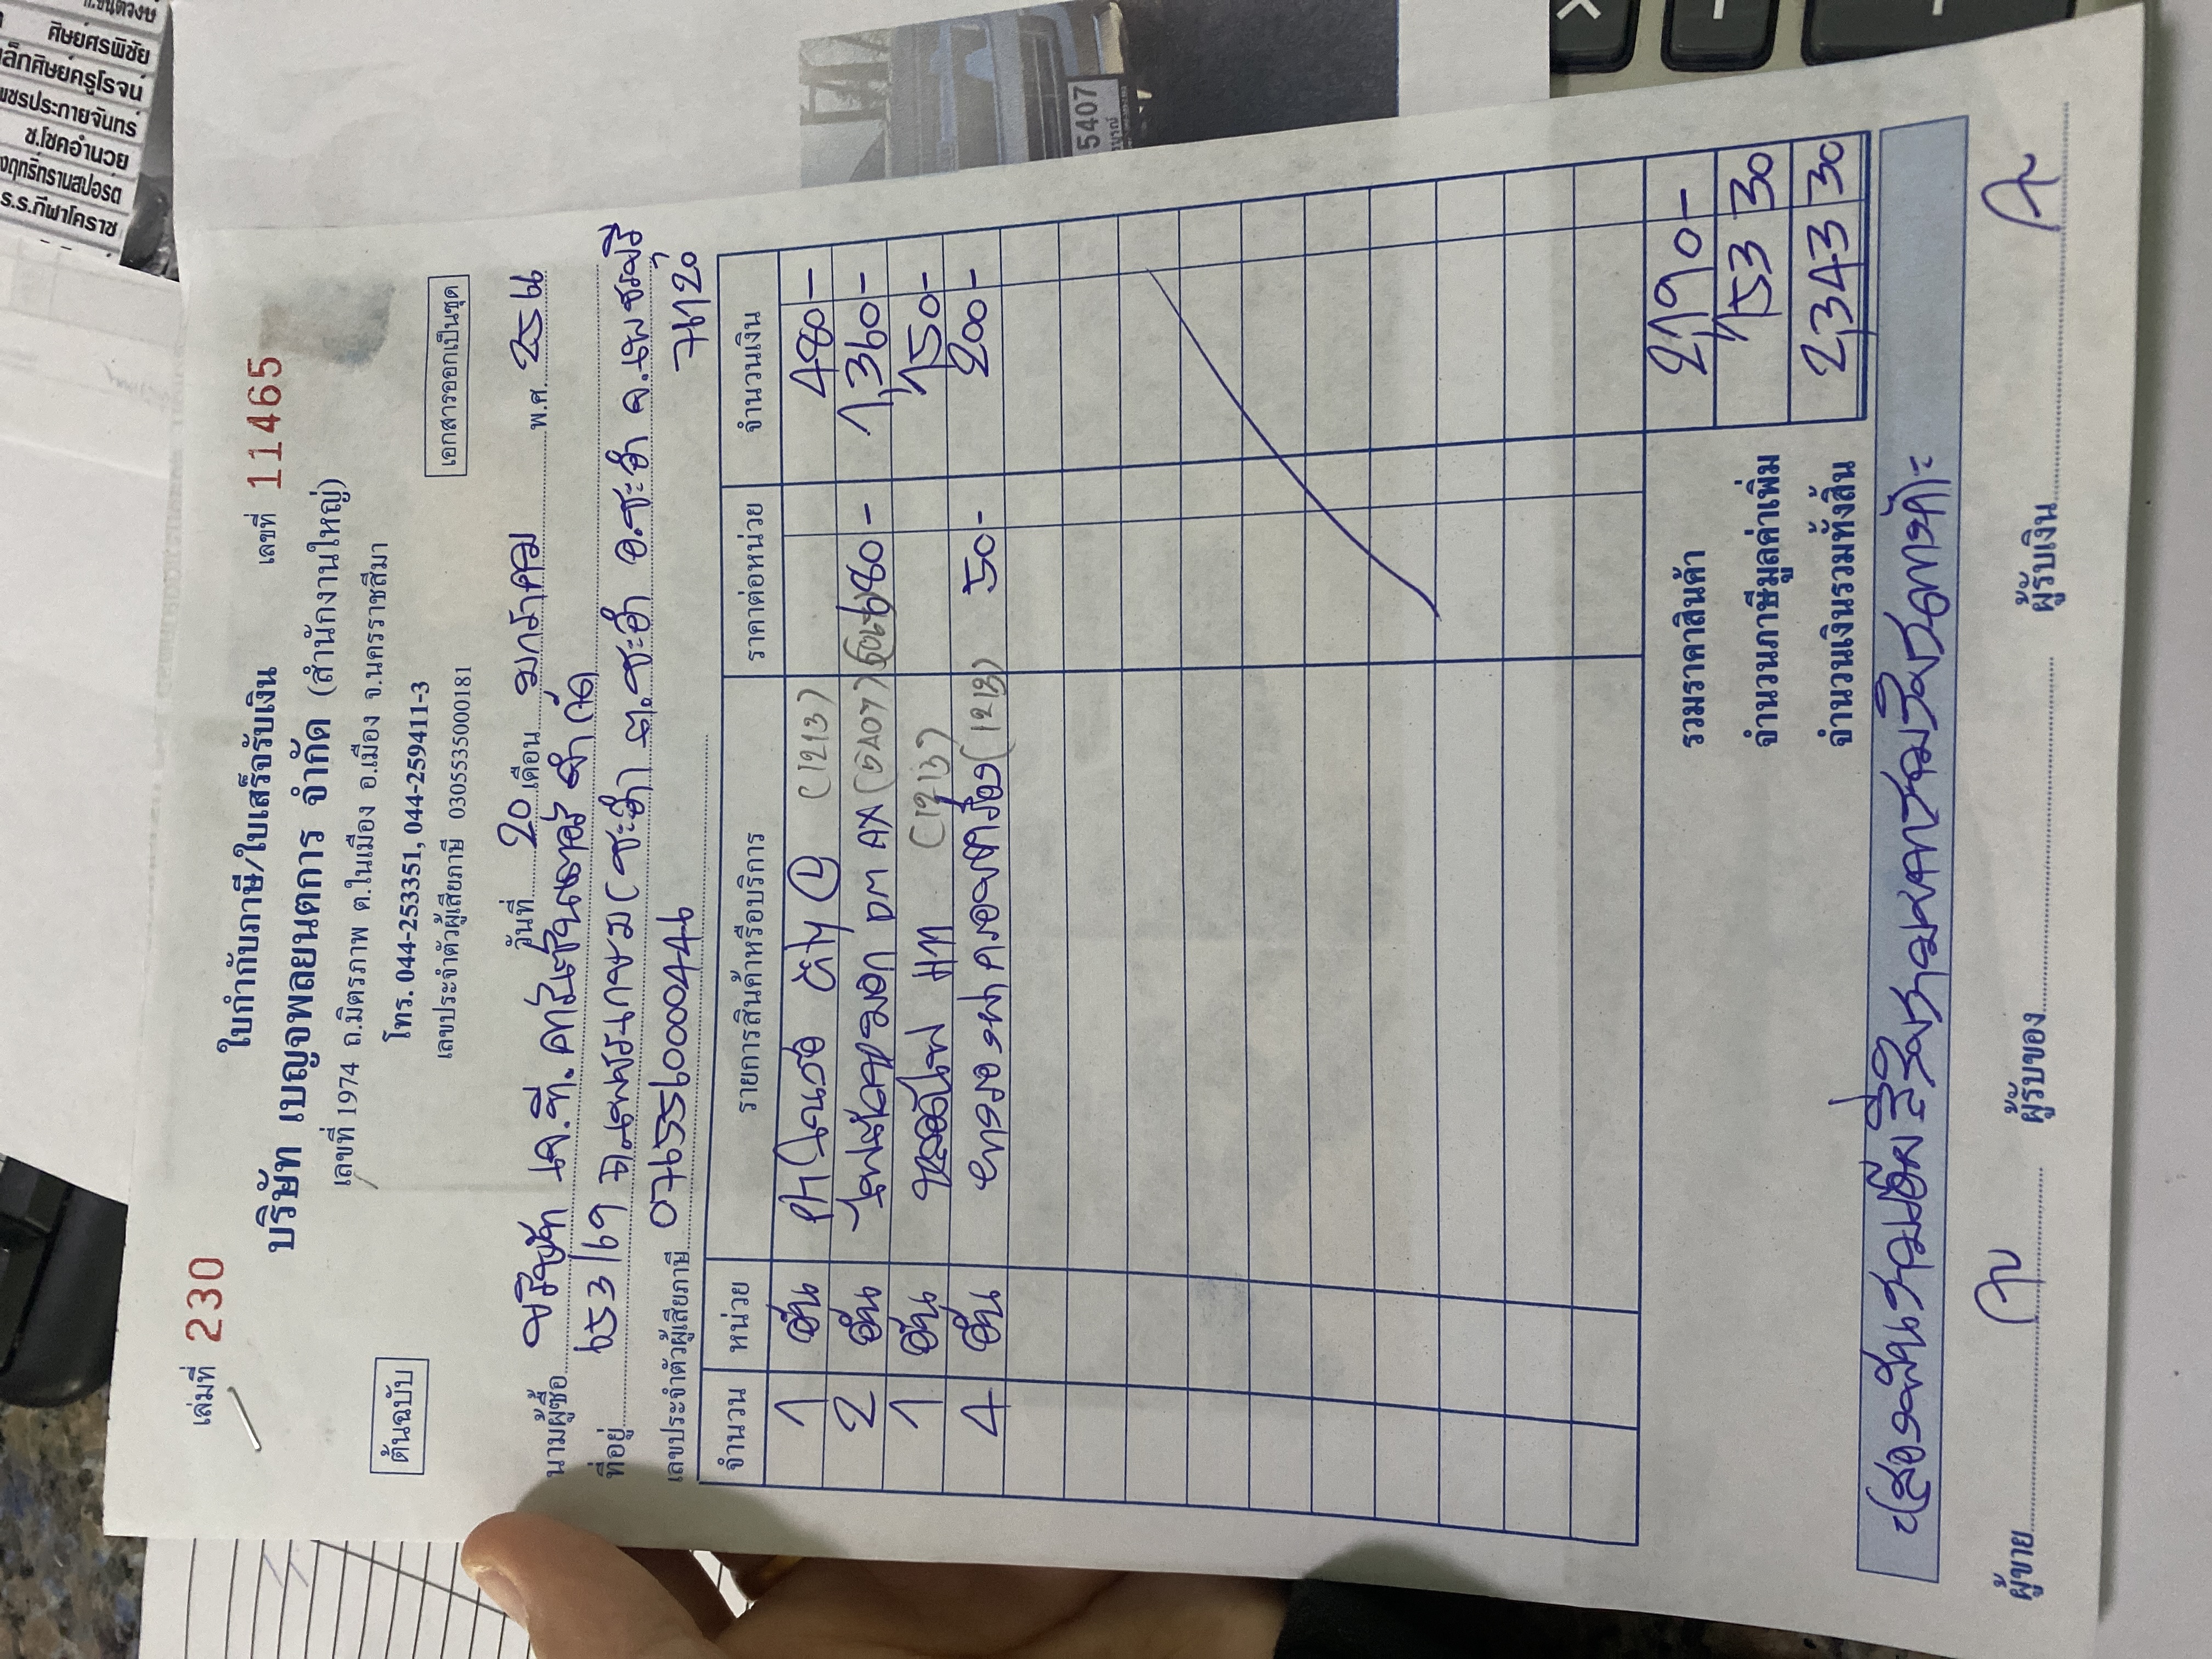 ศิษย์ศรพิชัย
เล็กศิษย์ครูโรจน์
เพชรประกายจันทร์
ช.โชคอำนวย
ร.ร.กีฬาโคราช
5407
เล่มที่ 230
ใบกำกับภาษี/ใบเสร็จรับเงิน
เลขที่ 11465
บริษัท เบญจพลยนตการ จำกัด (สำนักงานใหญ่)
เลขที่ 1974 ถ.มิตรภาพ ต.ในเมือง อ.เมือง จ.นครราชสีมา
โทร. 044-253351, 044-259411-3
เลขประจำตัวผู้เสียภาษี 0305535000181
ต้นฉบับ
เอกสารออกเป็นชุด
วันที่ 20 เดือน มกราคม พ.ศ. 25
นามผู้ซื้อ บริษัท เจ.ที. จำกัด
ที่อยู่ 653/69 ถ.เพชรเกษม (ชะอำ) ต.ชะอำ อ.ชะอำ จ.เพชรบุรี
76120
เลขประจำตัวผู้เสียภาษี 0765560000446
จำนวน หน่วย รายการสินค้าหรือบริการ ราคาต่อหน่วย จำนวนเงิน
1 อัน (1213) 480 -
2 อัน DM AX 680 - 1,360 -
1 อัน HM (1213) 150 -
4 อัน (1213) 50 - 200 -
รวมราคาสินค้า 2,190 -
จำนวนภาษีมูลค่าเพิ่ม 153 30
จำนวนเงินรวมทั้งสิ้น 2,343 30
(สองพันสามร้อยสี่สิบสามบาทสามสิบสตางค์)
ผู้ขาย ผู้รับของ ผู้รับเงิน